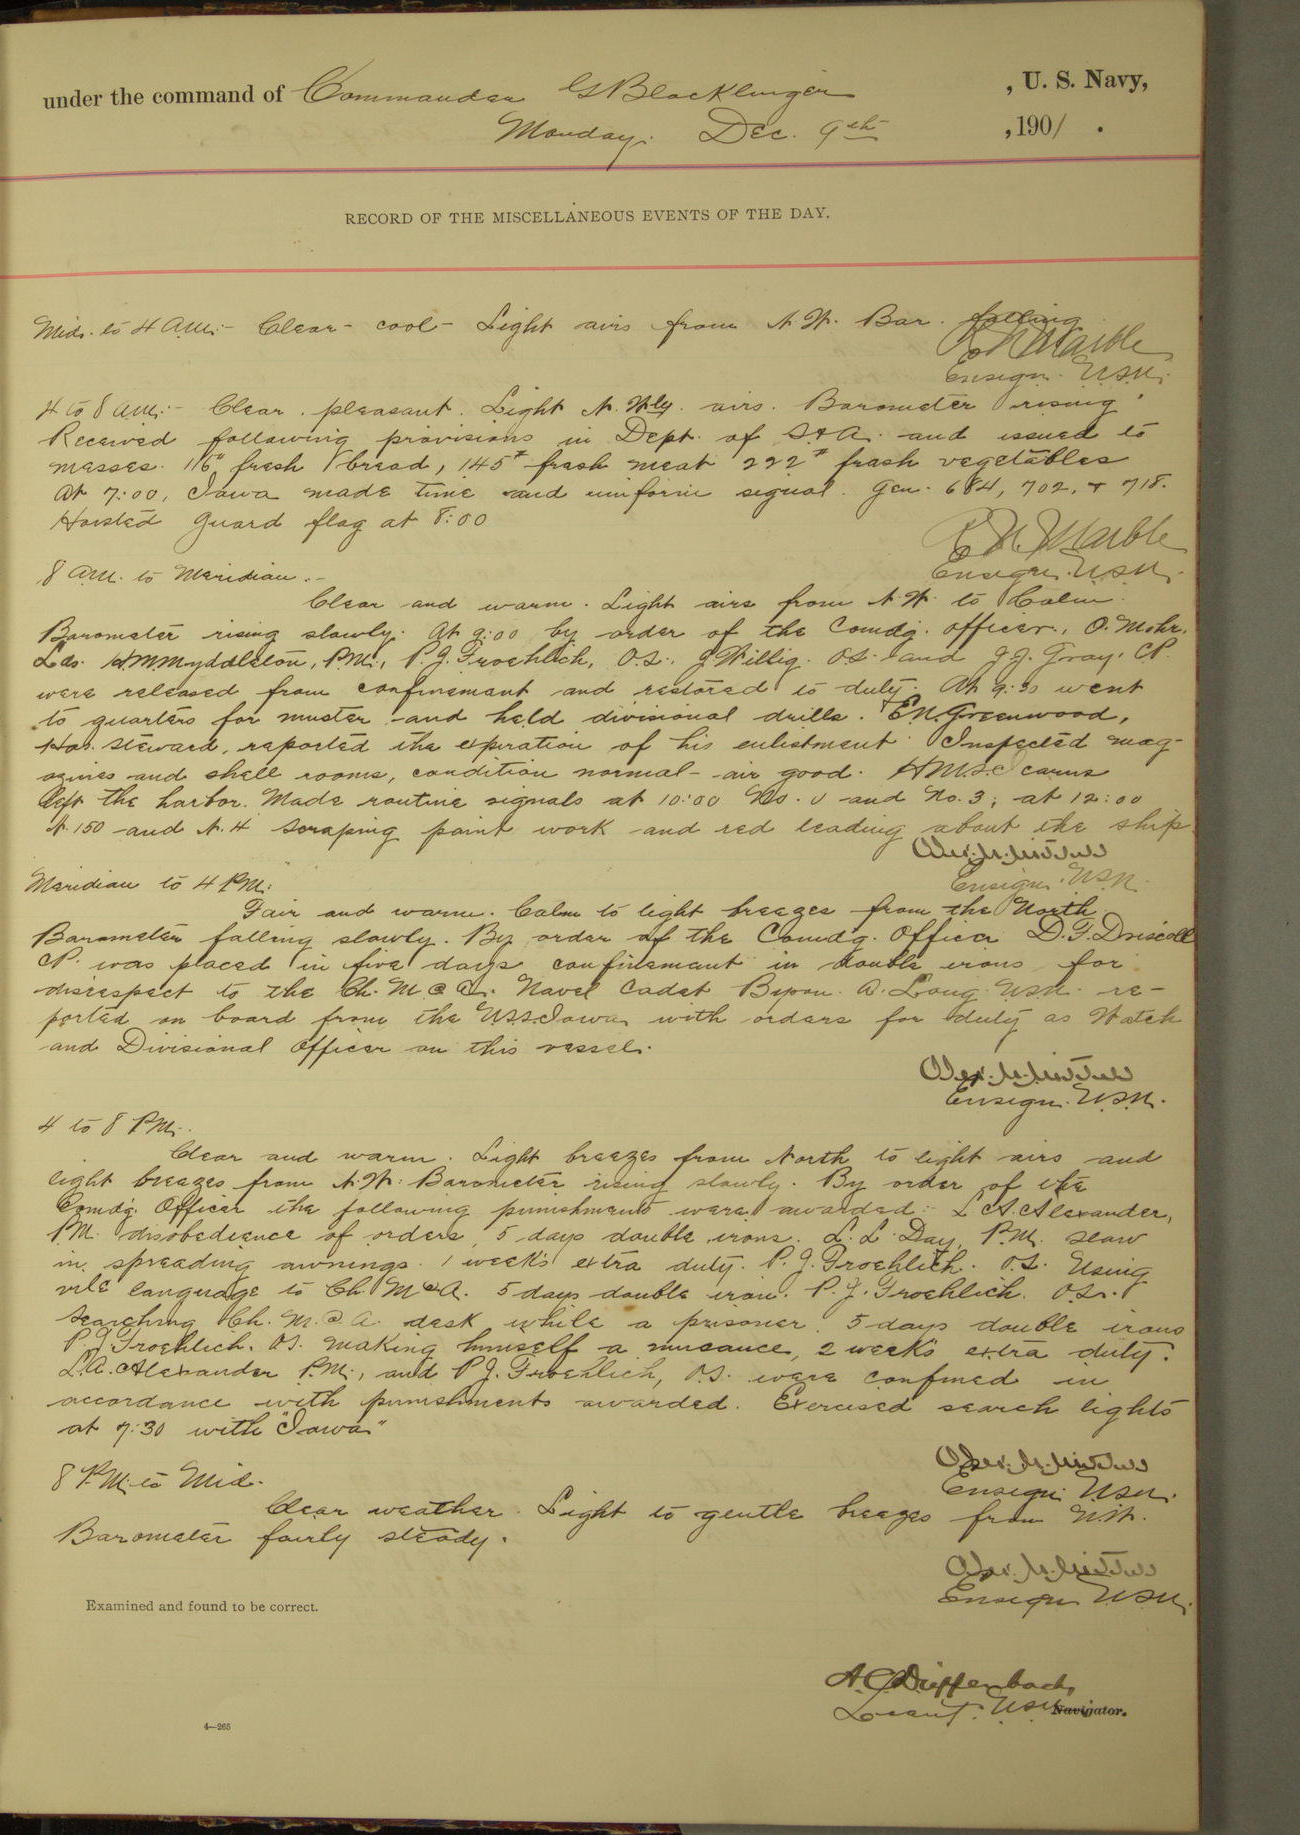 under the command of Commander G Blocklinger, U. S. Navy,
Monday. Dec. 9th, 1901.
RECORD OF THE MISCELLANEOUS EVENTS OF THE DAY.
Mid. to 4 A.M:- Clear - cool - Light airs from N.W. Bar. falling
R N Marble
Ensign. U.S.N.
4 to 8 A.M:- Clear. pleasant. Light N.Wly. airs. Barometer rising.
Received following provisions in Dept. of S.&A. and issued to
messes. 116# fresh bread, 145# fresh meat 222# fresh vegetables
At 7:00, Iowa made time and uniform signal. Gen. 684, 702, & 718.
Hoisted guard flag at 8:00
R N. Marble
Ensign. U.S.N.
8 A.M. to Meridian.-
Clear and warm. Light airs from N.W. to Calm.
Barometer rising slowly. At 9:00 by order of the Comdg. officer, O. Mohr,
Lds. H.M. Myddleton, P.M., P.J. Froehlich, O.S., J Willig. O.S. and J.J. Gray, C.P.
were released from confinement and restored to duty. At 9:30 went
to quarters for muster and held divisional drills. E.N. Greenwood,
Hos. steward, reported the expiration of his enlistment. Inspected mag-
azines and shell rooms, condition normal - air good. H.M.S. Icarus
left the harbor. Made routine signals at 10:00 No. 0 and No. 3; at 12:00
N. 150 and N. 4 Scraping paint work and red leading about the ship.
Ensign. U.S.N.
Meridian to 4 P.M:
Fair and warm. Calm to light breezes from the North.
Barometer falling slowly. By order of the Comdg. Officer D.F. Driscoll
C.P. was placed in five days confinement in double irons for
disrespect to the Ch. M.@A. Naval Cadet Byron. A. Long. U.S.N. re-
ported on board from the U.S.S. Iowa with orders for duty as Watch
and Divisional Officer on this vessel.
Ensign. U.S.N.
4 to 8 P.M:.
Clear and warm. Light breezes from North to light airs and
light breezes from N.W. Barometer rising slowly. By order of the
Comdg. Officer the following punishments were awarded: L A. Alexander,
P.M. disobedience of orders, 5 days double irons. L. L. Day, P.M. slow
in spreading awnings. 1 week's extra duty. P. J. Froehlich. O.S. Using
vile language to Ch. M@A. 5 days double iron. P. J. Froehlich. O.S.
Searching Ch. M.@A. desk while a prisoner. 5 days double irons
P J Froehlich. O.S. making himself a nuisance, 2 weeks extra duty.
L.A. Alexander P.M., and P J. Froehlich, O.S. were confined in
accordance with punishments awarded. Exercised search lights
at 7:30 with "Iowa"
Ensign U.S.N.
8 P.M. to Mid.
Clear weather. Light to gentle breezes from N.W.
Barometer fairly steady.
Ensign U.S.N.
Examined and found to be correct.
A. C. Dieffenbach,
Lieut. U.S.N. Navigator.
4—265